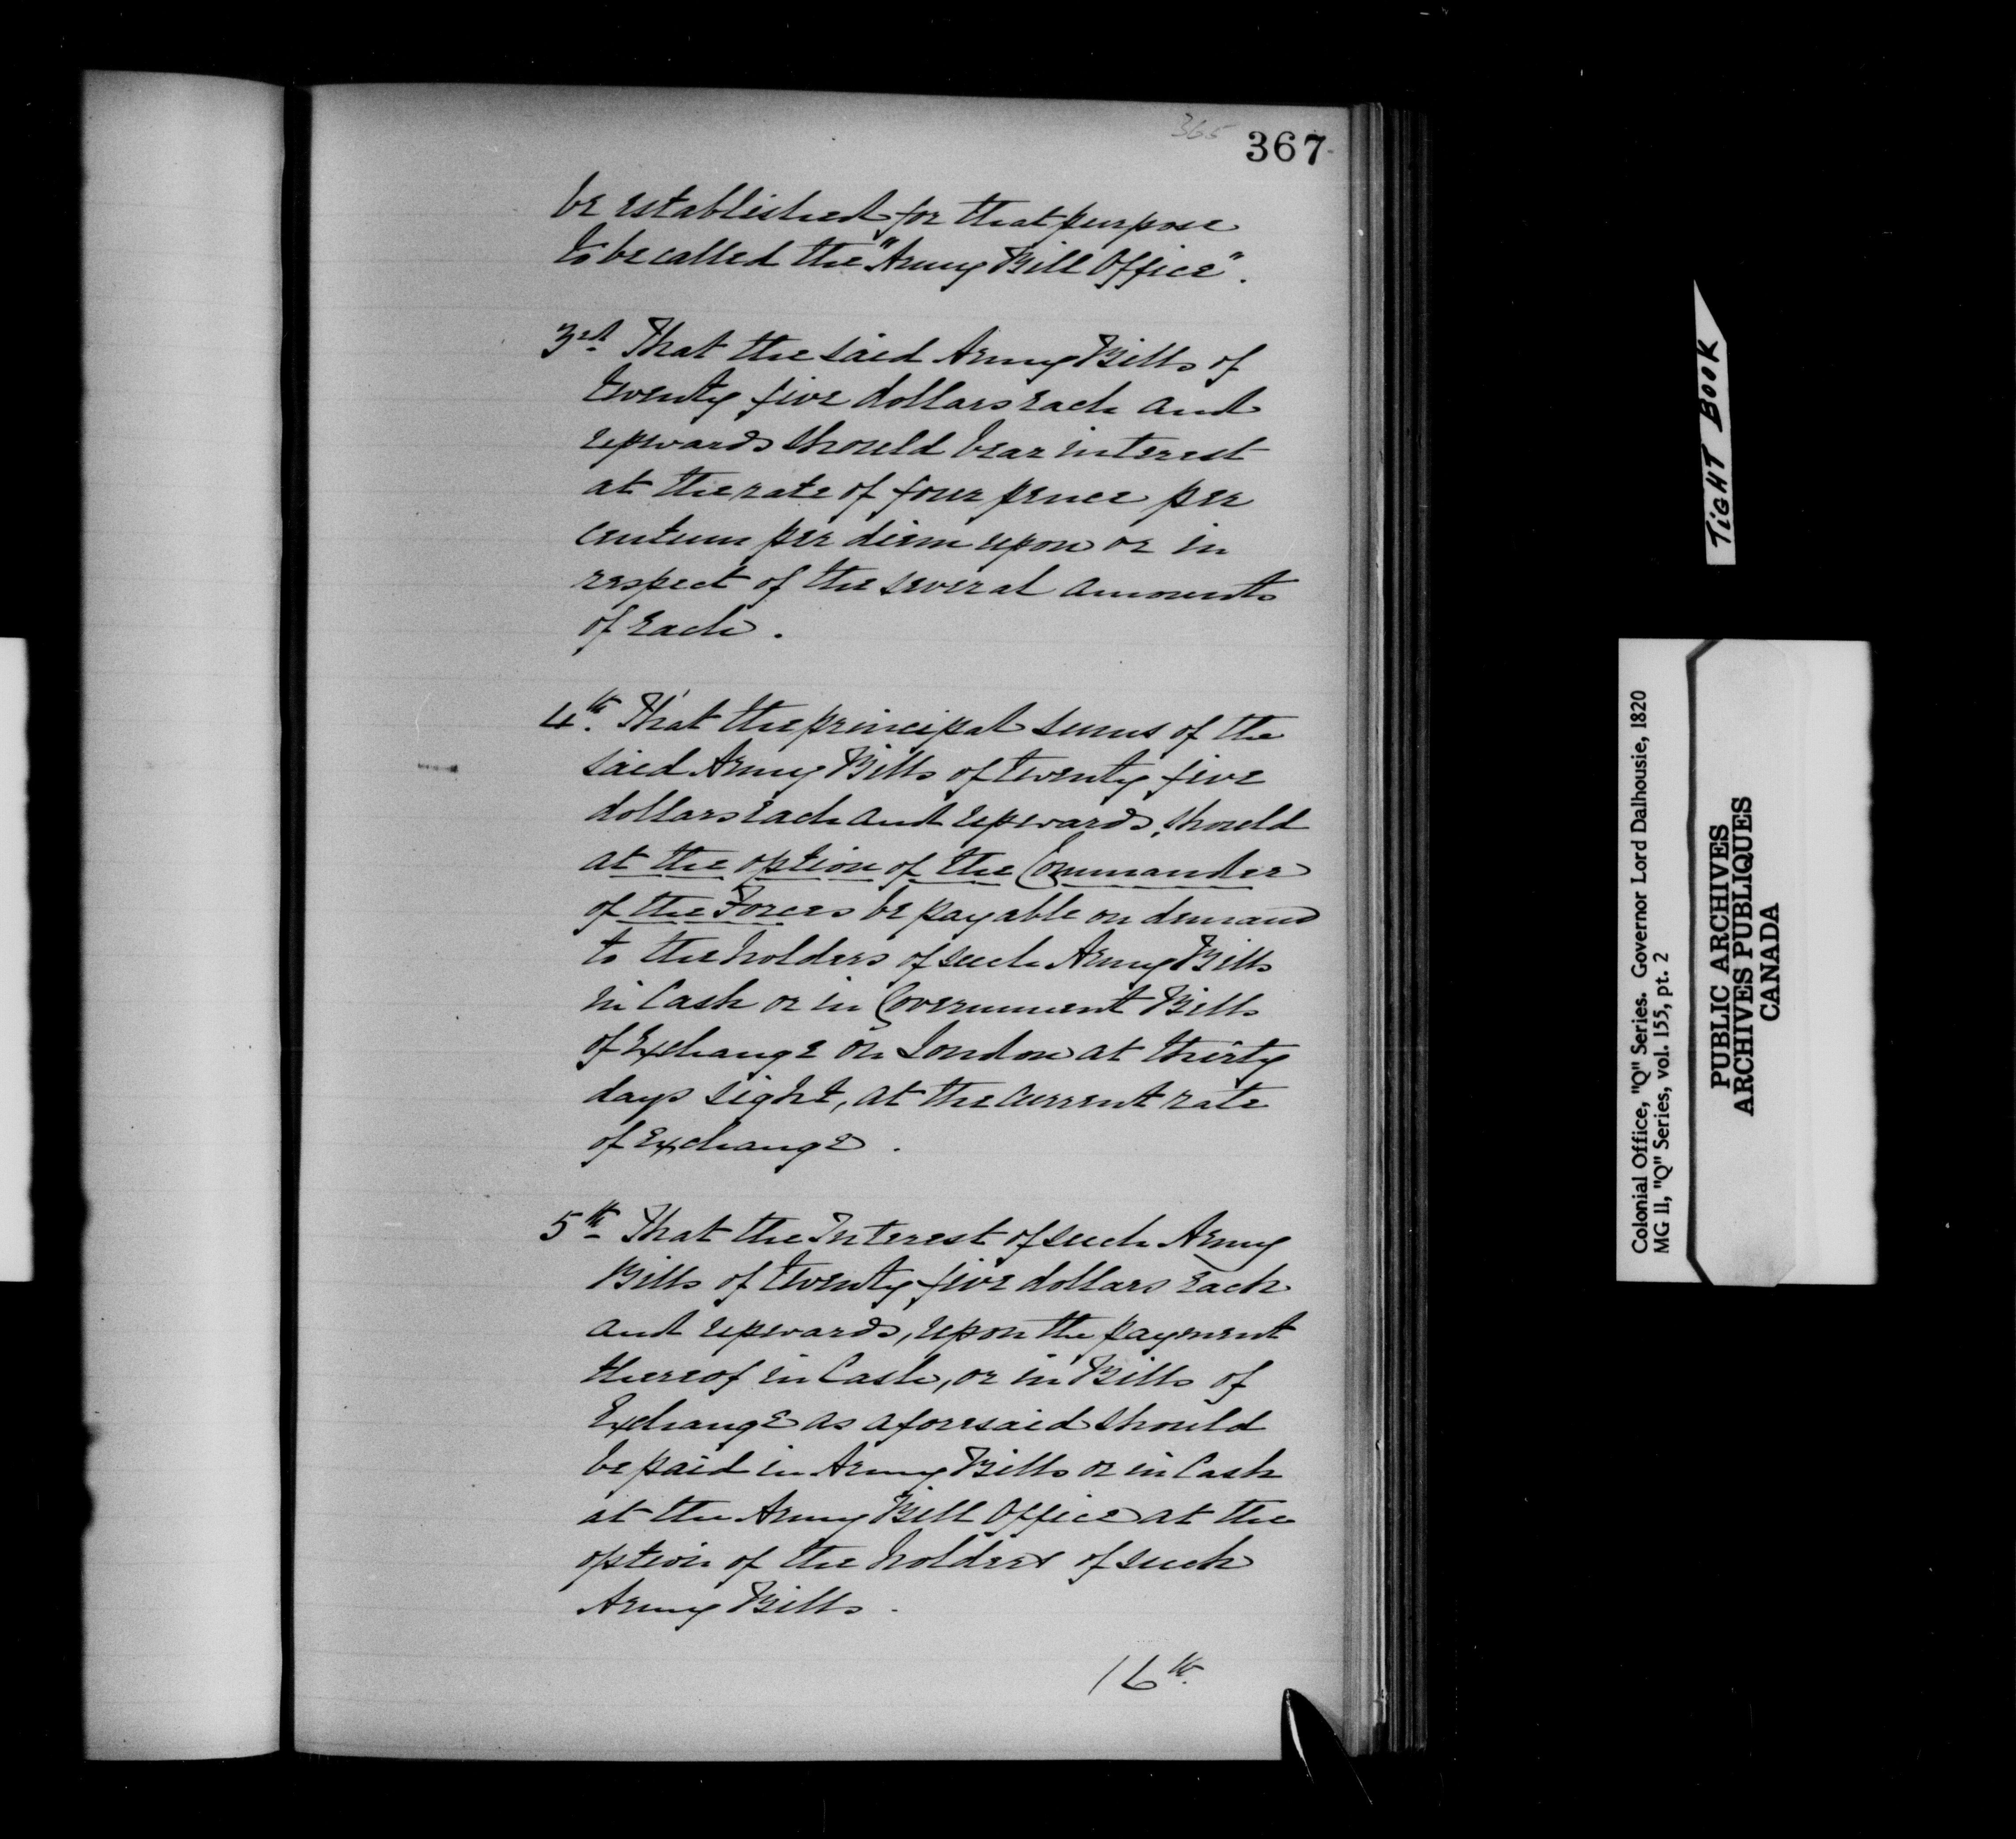 365 367
be established for that purpose
to be called the "Army Bill Office".
3rd. That the said Army Bills of
twenty five dollars each and
upwards should bear interest
at the rate of four pence per
centum per diem upon or in
respect of the several amounts
of each.
4th. That the principal sums of the
said Army Bills of twenty five
dollars each and upwards, should
at the option of the Commander
of the Forces be payable on demand
to the holders of such Army Bills
in Cash or in Government Bills
of Exchange on London at thirty
days sight, at the current rate
of Exchange.
5th That the Interest of such Army
Bills of twenty five dollars each
and upwards, upon the payment
thereof in Cash, or in Bills of
Exchange as aforesaid should
be paid in Army Bills or in Cash
at the Army Bill Office at the
option of the holders of such
Army Bills.
16th.
TIGHT BOOK
Colonial Office, "Q" Series. Governor Lord Dalhousie, 1820
MG 11, "Q" Series, vol. 155, pt. 2
PUBLIC ARCHIVES
ARCHIVES PUBLIQUES
CANADA